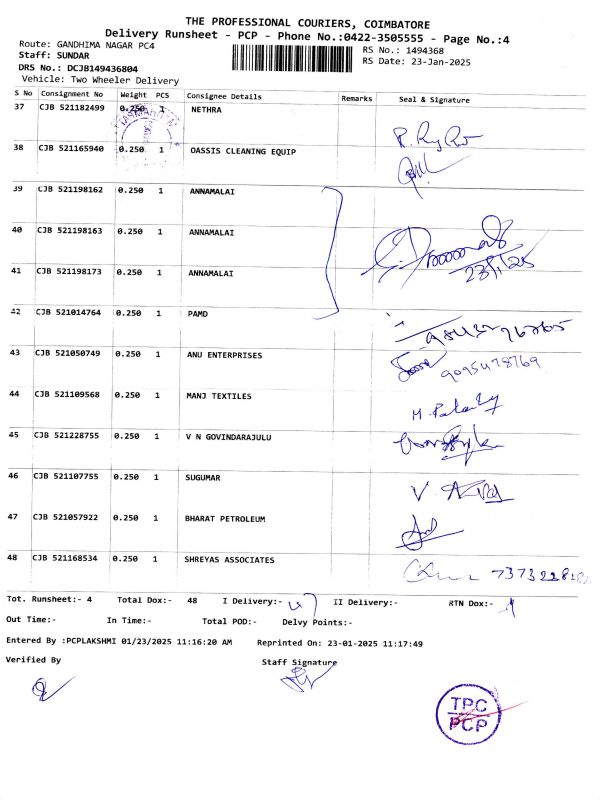 THE PROFESSIONAL COURIERS, COIMBATORE
Delivery Runsheet - PCP - Phone No.:0422-3505555 - Page No.:4
Route: GANDHIMA NAGAR PC4
Staff: SUNDAR
DRS No.: DCJB149436804
Vehicle: Two Wheeler Delivery
RS No.: 1494368
RS Date: 23-Jan-2025
S No Consignment No Weight PCS Consignee Details Remarks Seal & Signature
37 CJB 521182499 0.250 1 NETHRA
38 CJB 521165940 0.250 1 OASSIS CLEANING EQUIP
39 CJB 521198162 0.250 1 ANNAMALAI
40 CJB 521198163 0.250 1 ANNAMALAI
23/1/25
41 CJB 521198173 0.250 1 ANNAMALAI
42 CJB 521014764 0.250 1 PAMD
43 CJB 521050749 0.250 1 ANU ENTERPRISES
9095478769
44 CJB 521109568 0.250 1 MANJ TEXTILES
45 CJB 521228755 0.250 1 V N GOVINDARAJULU
46 CJB 521107755 0.250 1 SUGUMAR
47 CJB 521057922 0.250 1 BHARAT PETROLEUM
48 CJB 521168534 0.250 1 SHREYAS ASSOCIATES
Tot. Runsheet:- 4 Total Dox:- 48 I Delivery:- II Delivery:- RTN Dox:-
Out Time:- In Time:- Total POD:- Delvy Points:-
Entered By :PCPLAKSHMI 01/23/2025 11:16:20 AM Reprinted On: 23-01-2025 11:17:49
Verified By Staff Signature
TPC
PCP